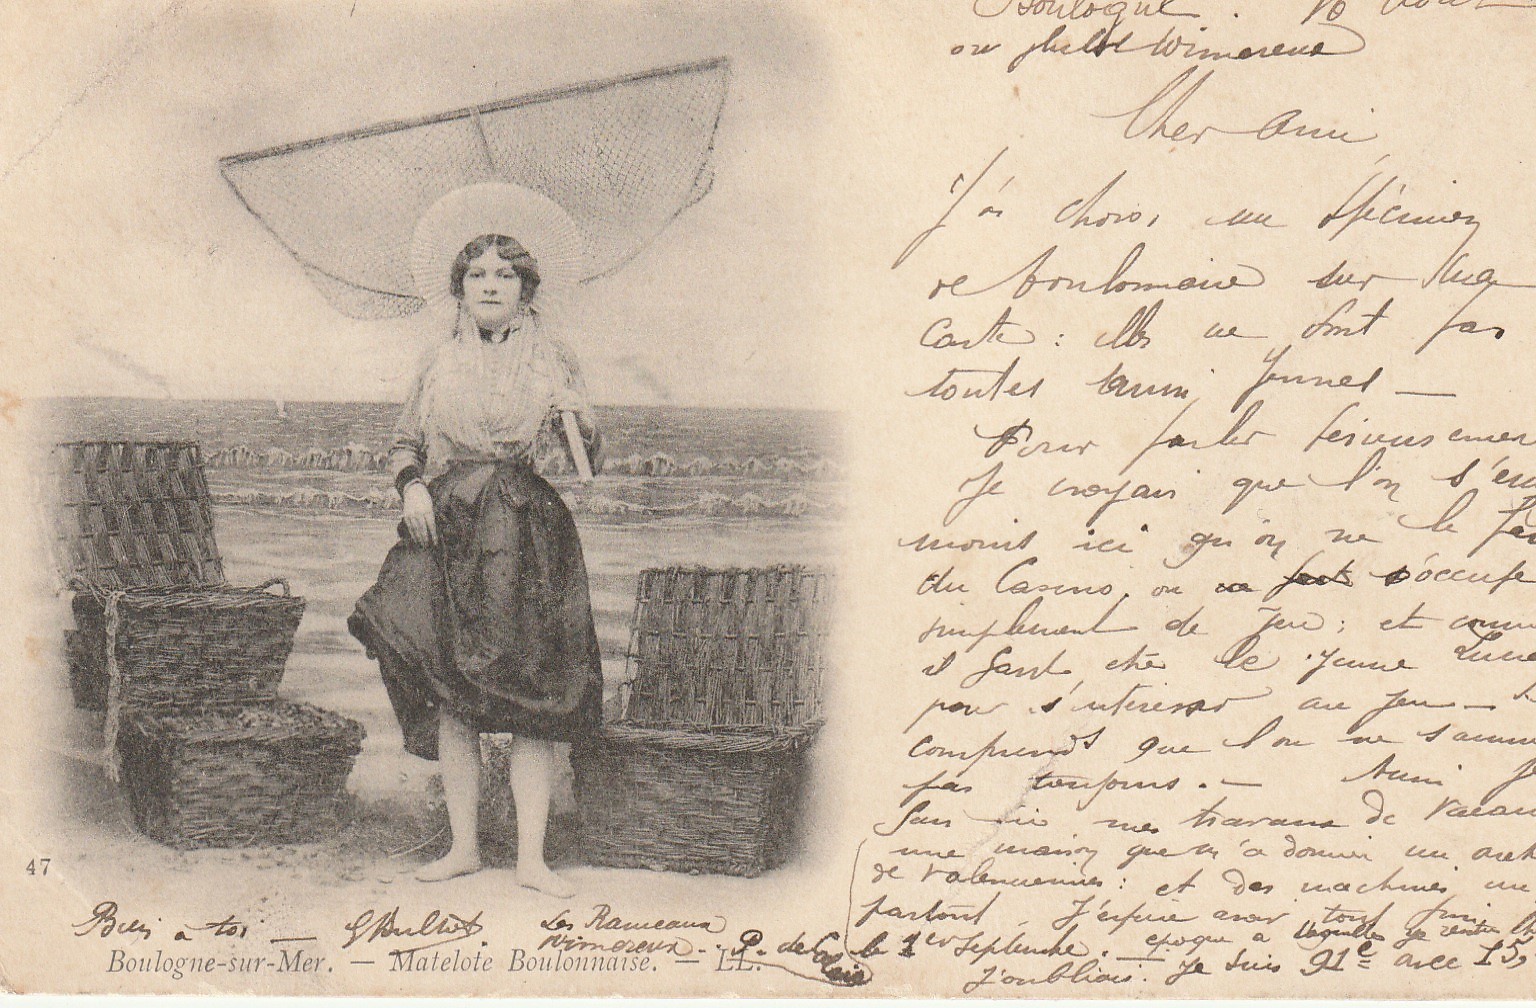 Boulogne.
ou plutôt Wimereux
Cher Ami
J'ai choisi un spécimen
de boulonnaise sur ma
carte : elles ne sont pas
toutes aussi jeunes —
Pour parler sérieusemen
Je croyais que l'on s'en
moins ici qu'on ne le
du Casino, ou s'occupe
simplement de Jeu ; et comm
il faut être le jeune
pour s'intéresser au jeu —
comprends que l'on ne s'amu
pas toujours. — Aussi
ici mes travaux de vacan
une maison que m'a donné un
de Valenciennes : et des machines un
partout. J'espère avoir tout fini
le 1er Septembre. — époque à laquelle je rentre
J'oubliais. Je suis 91e avec 15,
47
Bien à toi — Les Rameaux
Wimereux. P. de Calais
Boulogne-sur-Mer. — Matelote Boulonnaise. — LL.